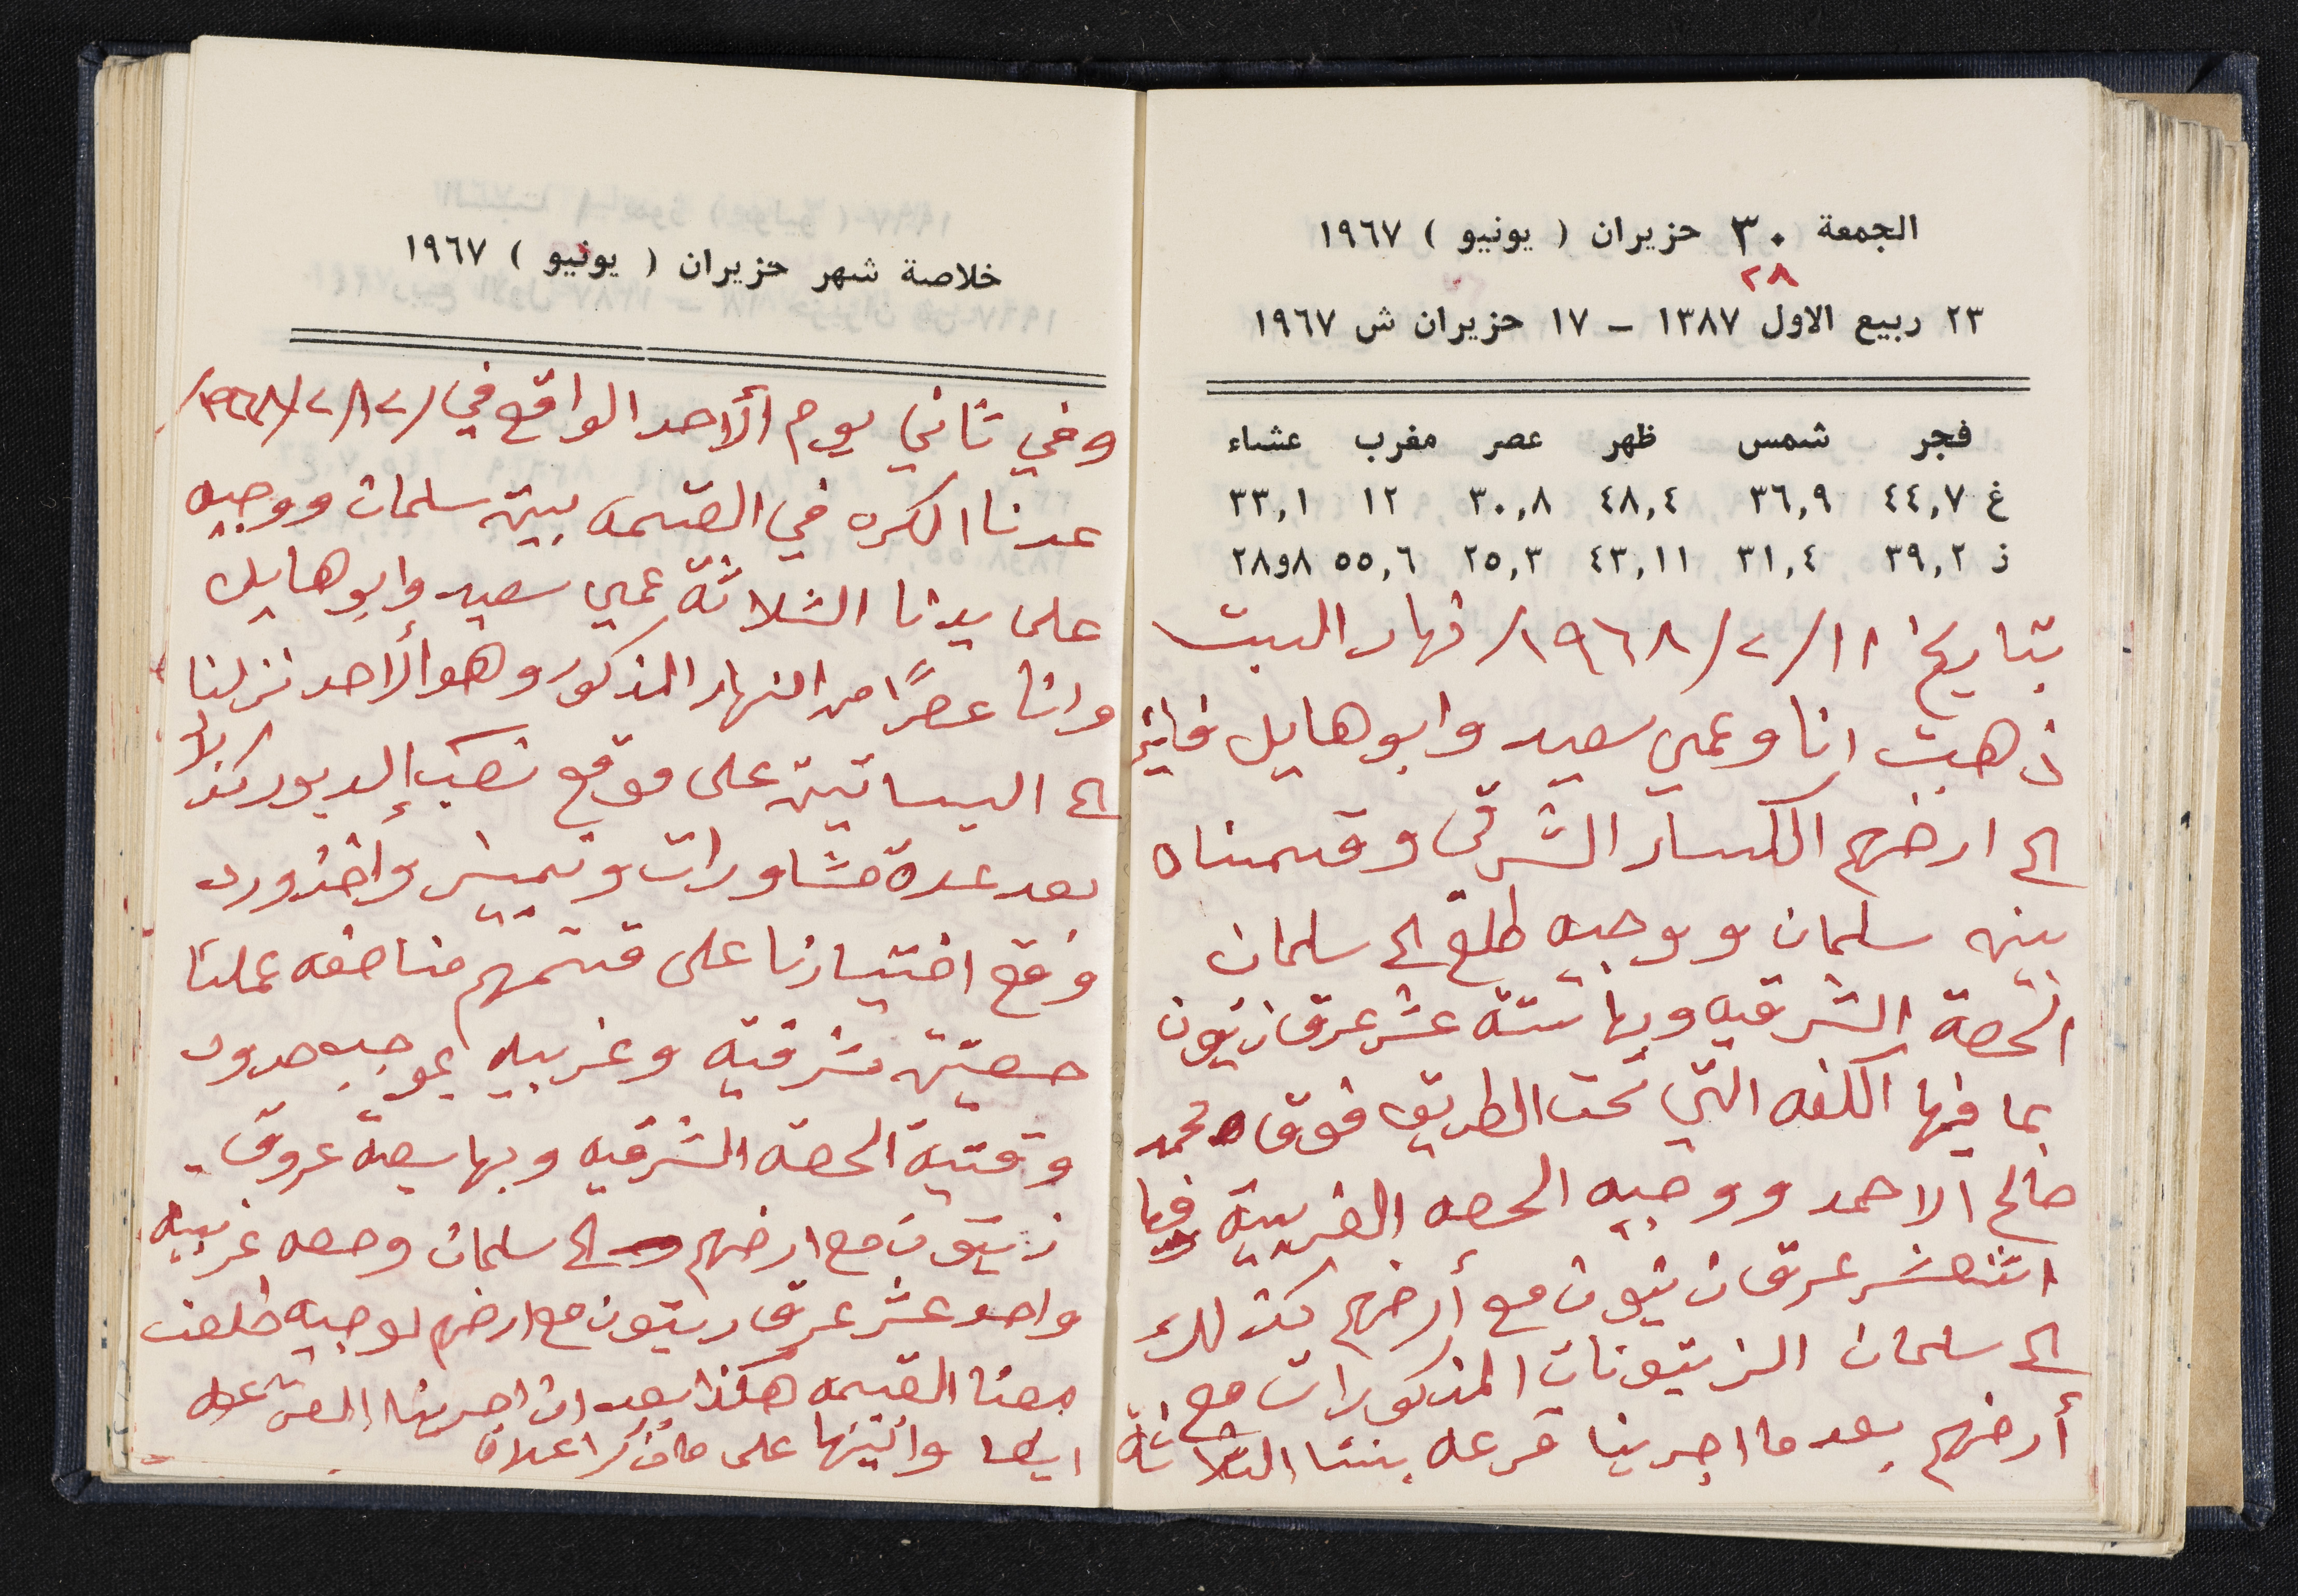 الجمعة ٣٠ حزيران ( يونيو ) ١٩٦٧
٢٨
٢٣ ربيع الاول ١٣٨٧ - ١٧ حزيران ش ١٩٦٧
فجر شمس ظهر عصر مغرب عشاء
غ ٤٤,٧ ٣٦,٩ ٤٨,٤ ٣٠,٨ ١٢ ٣٣,١
ز ٣٩,٢ ٣١,٤ ٤٣,١١ ٢٥,٣ ٥٥,٦ ٨و٢٨
بتاريخ ١١/٢/١٩٦٨/ نهار السبت
ذهبت انا وعمي سعيد وابو هايل فايز
الى ارضهم الكسار الشرقي وقسمناه
بين سلمان ووجيه طلع الى سلمان
الحصة الشرقيه وبها ستة عشر عرق زيتون
بما فيها الكفه التي تحت الطريق فوق محمد
صالح الاحمد ووجيه الحصه الغربية فيها
اثنعشر عرق زيتون مع أرضهم كذلك
الى سلمان الزيتونات المذكورات مع
أرضهم بعدما اجرينا قرعه بيننا الثلاثة
خلاصة شهر حزيران ( يونيو ) ١٩٦٧
وفي ثاني يوم ألاحد الواقع في /١٢/٢/١٩٦٨/
عدنا الكره في القسمه بين سلمان ووجيه
على يدنا الثلاثة عمي سعيد وابو هايل
وانا عصرًا من النهار المذكور وهو ألاحد نزلنا
الى البساتين على موقع نصب الديور كذلك
بعد عدة مشاورات وتمييز واخذ ورد
وقع اختيارنا على قسمهم مناصفه عملنا
حصتين شرقية وغربيه بموجب حدود
وقتية الحصه الشرقيه وبها سبعة عروق
زيتون مع ارضهم الى سلمان وحصه غربيه
واحد عشر عرق زيتون مع ارضهم لوجيه طلعت
معنا القسمه هكذا بعد ان اجرينا القرعه
ايضا على ما ذكر اعلاه